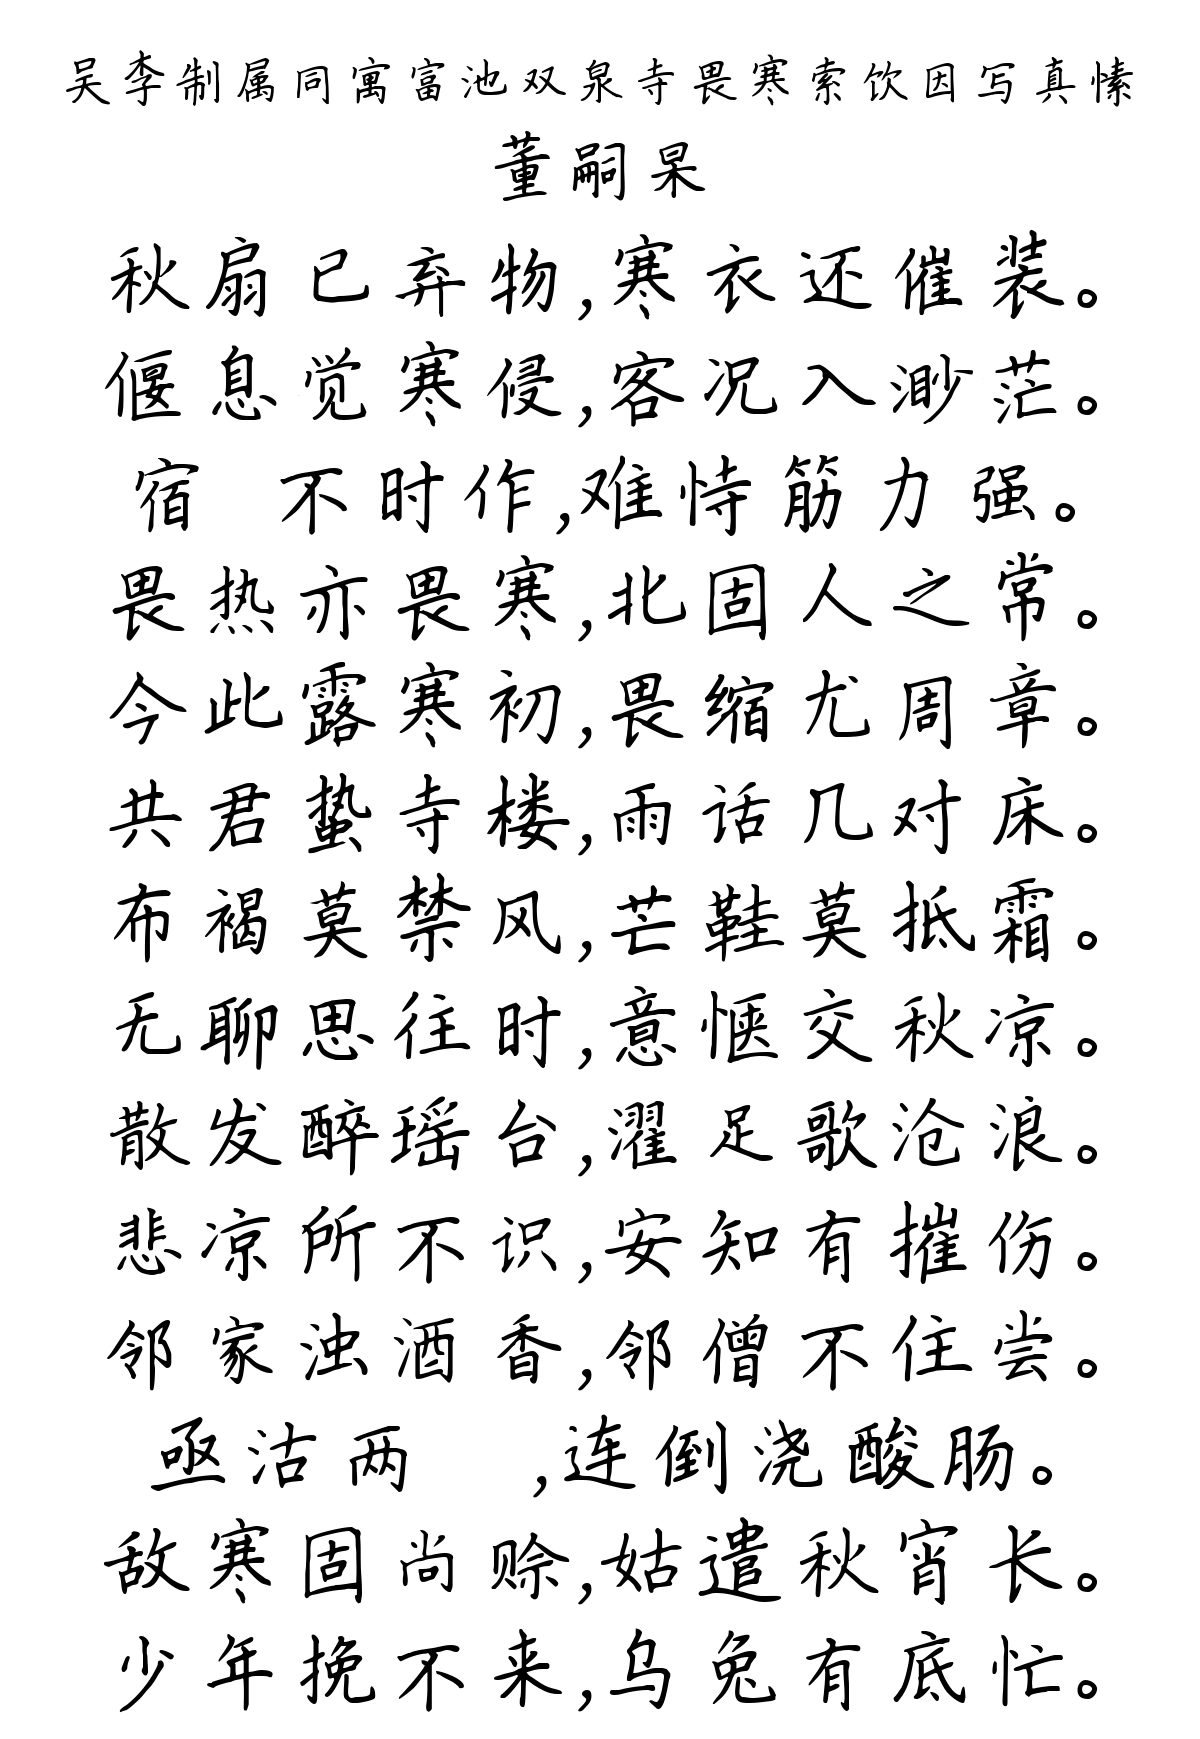 吴李制属同寓富池双泉寺畏寒索饮因写真愫
董嗣杲
秋扇已弃物,寒衣还催装。
偃息觉寒侵,客况入渺茫。
宿 不时作,难恃筋力强。
畏热亦畏寒,北固人之常。
今此露寒初,畏缩尤周章。
共君蛰寺楼,雨话几对床。
布褐莫禁风,芒鞋莫抵霜。
无聊思往时,意惬交秋凉。
散发醉瑶台,濯足歌沧浪。
悲凉所不识,安知有摧伤。
邻家浊酒香,邻僧不住尝。
亟沽两 ,连倒浇酸肠。
敌寒固尚赊,姑遣秋宵长。
少年挽不来,乌兔有底忙。